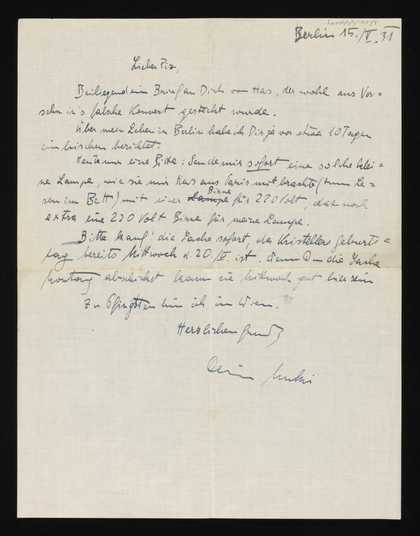 Berlin 15./V. 31
Lieber Pix,
Beiliegend ein Brief an Dich von Has, der wohl aus Ver-
sehn in's falsche Kouvert gesteckt wurde.
Über mein Leben in Berlin habe ich Dir ja vor etwa 10 Tagen
ein bischen berichtet.
Heute nur eine Bitte: Sende mir sofort eine solche klei-
ne Lampe, wie sie mir Has aus Paris mitbrachte (zum Le-
sen im Bett) mit einer Birne für 220 Volt, dazu noch
extra eine 220 Volt Birne für meine Lampe.
Bitte kauf' die Sache sofort, da Kristellers Geburts-
tag bereits Mittwoch d. 20./V. ist. Wenn Du die Sache
Montag abschickst kann sie Mittwoch gut hier sein
Zu Pfingsten bin ich in Wien.
Herzlichen Gruß
Dein